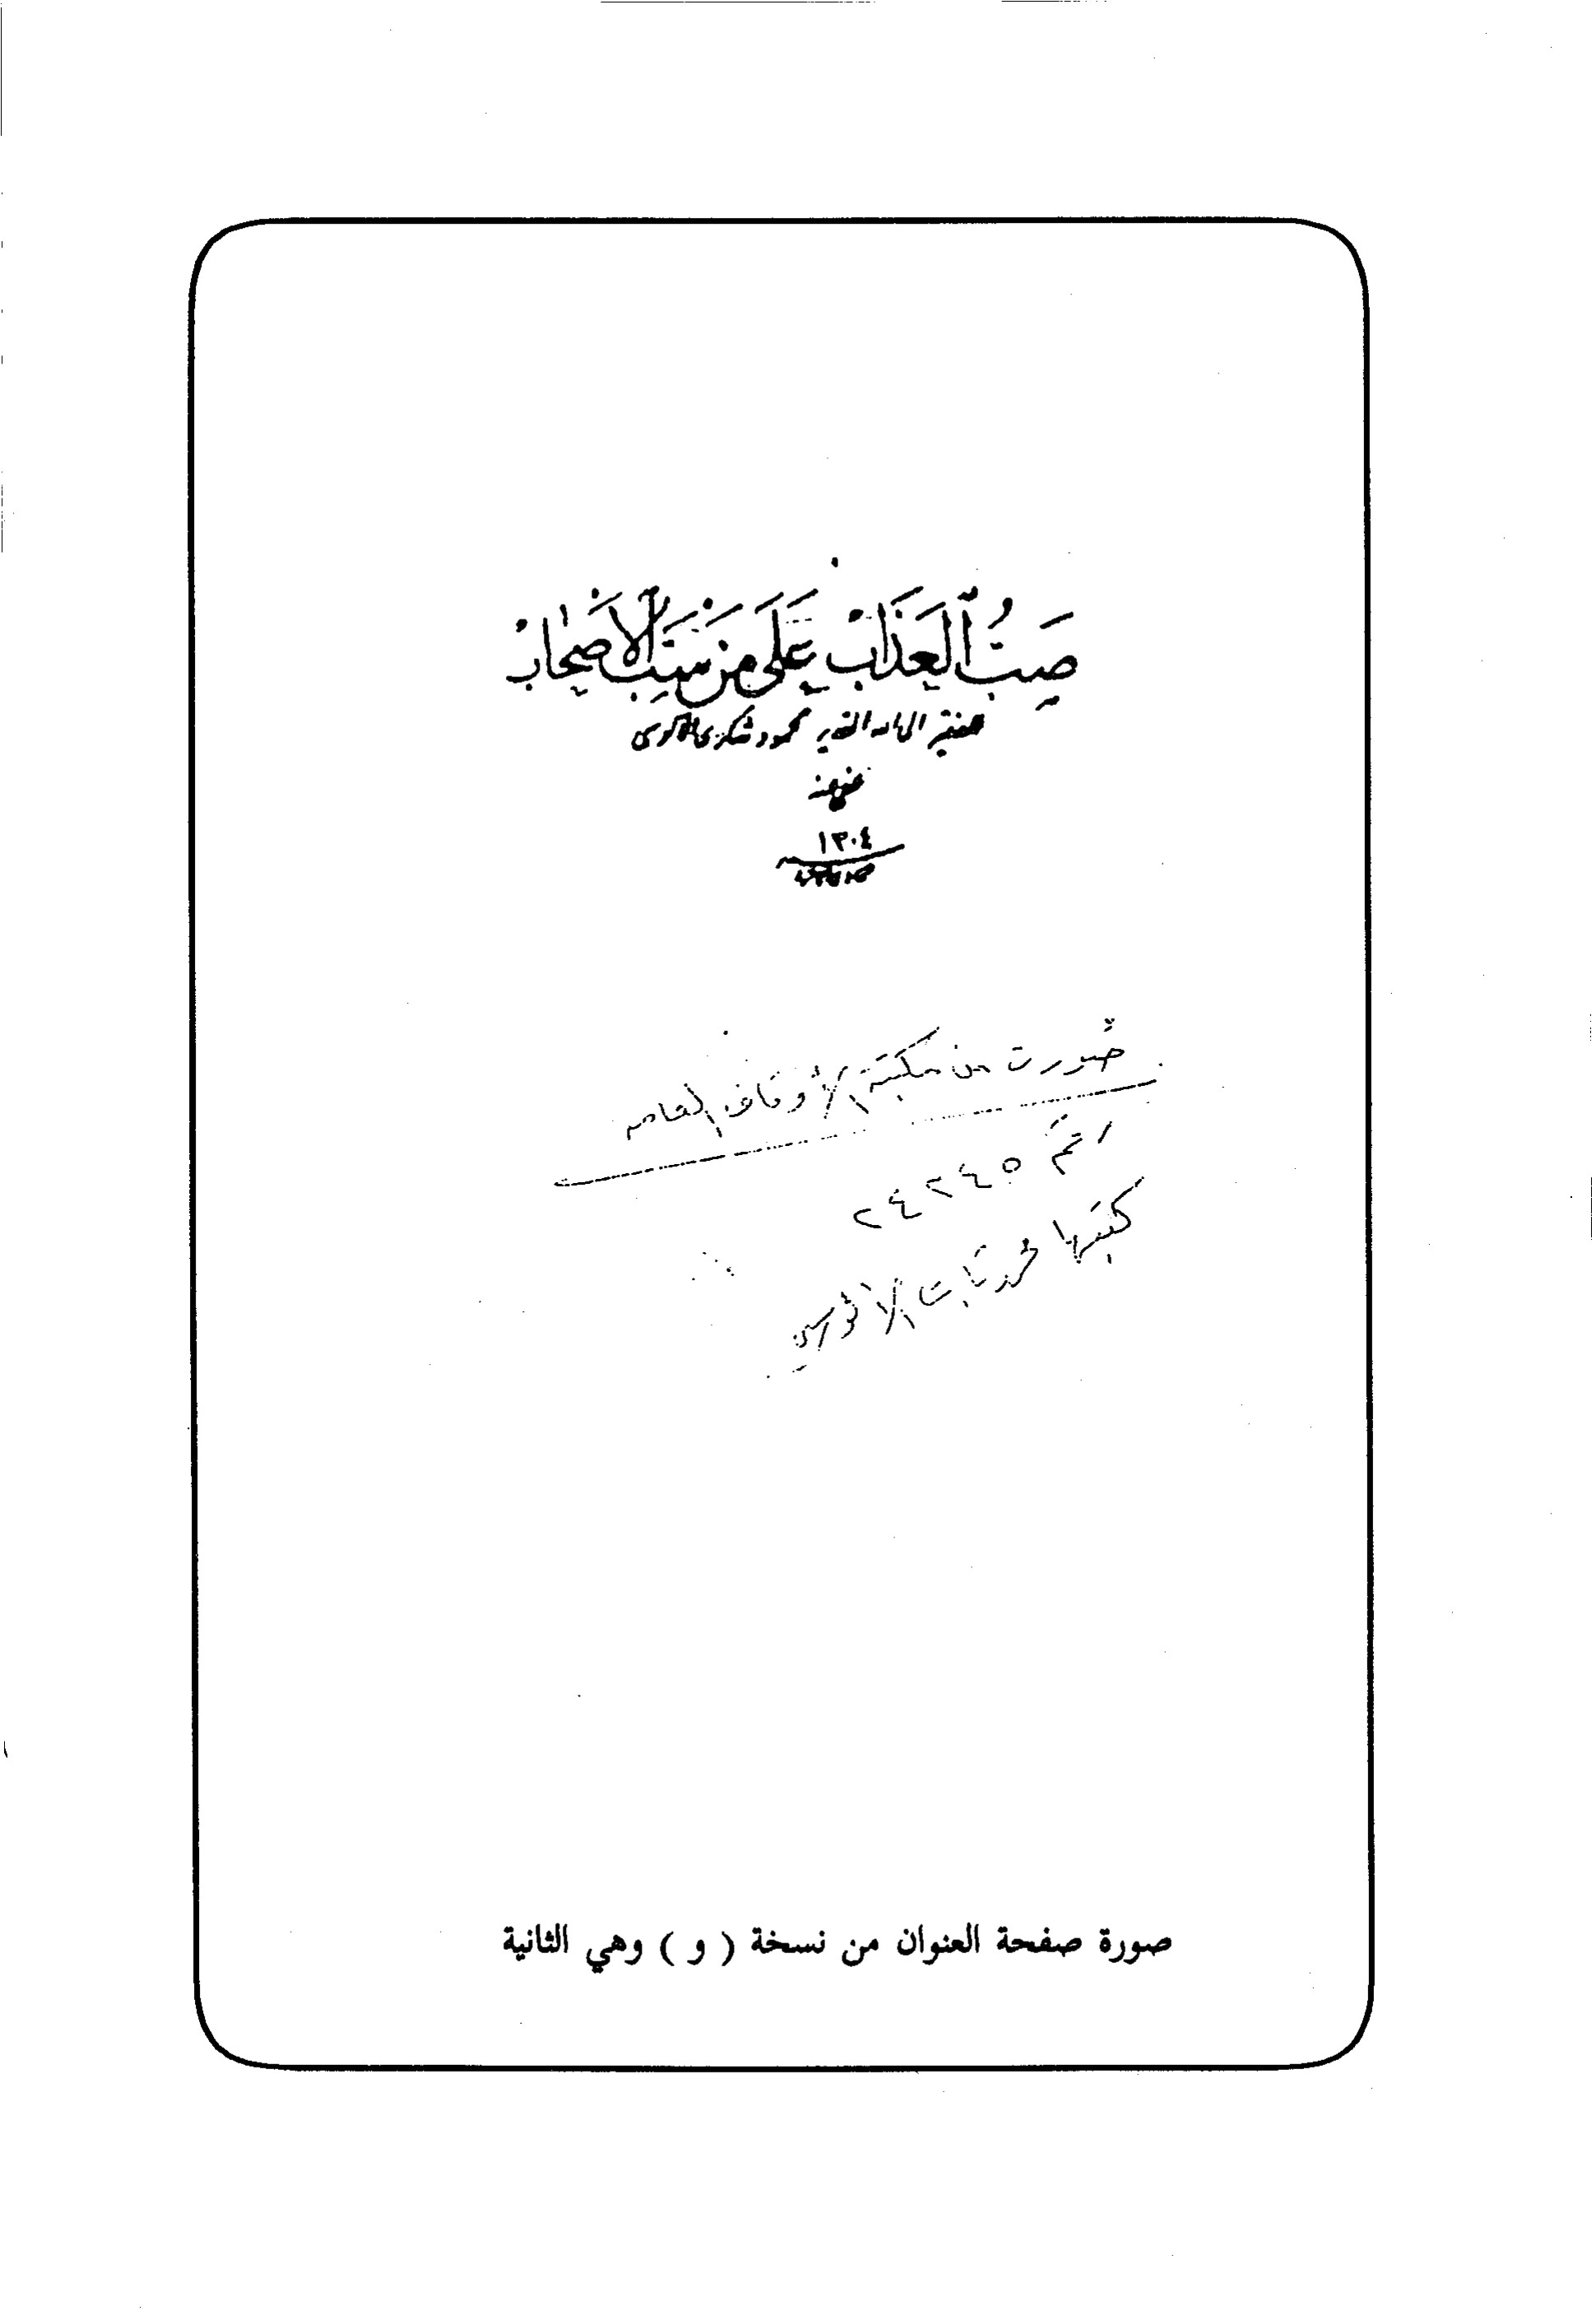 صَبُّ الْعَذَابِ عَلَى مَنْ سَبَّ الْأَصْحَاب
الفقير محمود شكري الآلوسي
عفي عنه
١٣٠٤
صورت من مكتبة الأوقاف العامه
رقم ٢٤٢٤٥
كتبها محمد ثابت الألوسي
صورة صفحة العنوان من نسخة ( و ) وهي الثانية